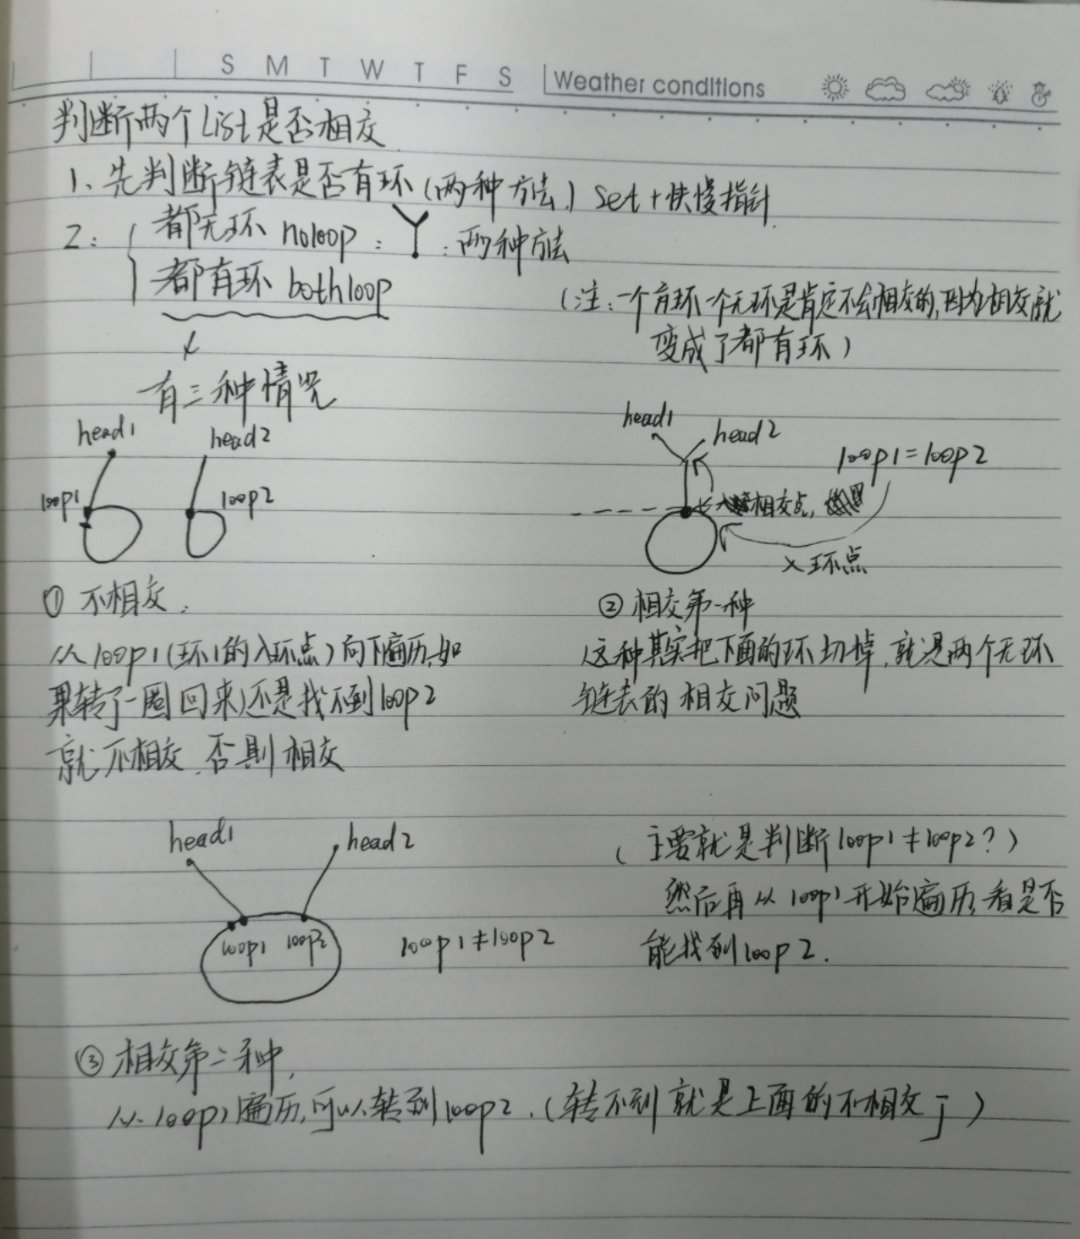 S M T W T F S Weather conditions
判断两个List是否相交
1、先判断链表是否有环(两种方法) Set+快慢指针
2: 都无环 noloop: Y: 两种方法
都有环 bothloop
(注:一个有环一个无环是肯定不会相交的,因为相交就
变成了都有环)
有三种情况
head1 head2
loop1 loop2
head1 head2
loop1=loop2
相交点,
入环点
① 不相交:
从loop1(环1的入环点)向下遍历,如
果转了一圈(回来)还是找不到loop2
就不相交.否则相交
② 相交第一种
这种其实把下面的环切掉,就是两个无环
链表的相交问题
head1 head2
loop1 loop2
loop1≠loop2
(主要就是判断loop1≠loop2?)
然后再从loop1开始遍历,看是否
能找到loop2.
③ 相交第二种,
从loop1遍历,可以转到loop2.(转不到就是上面的不相交了)